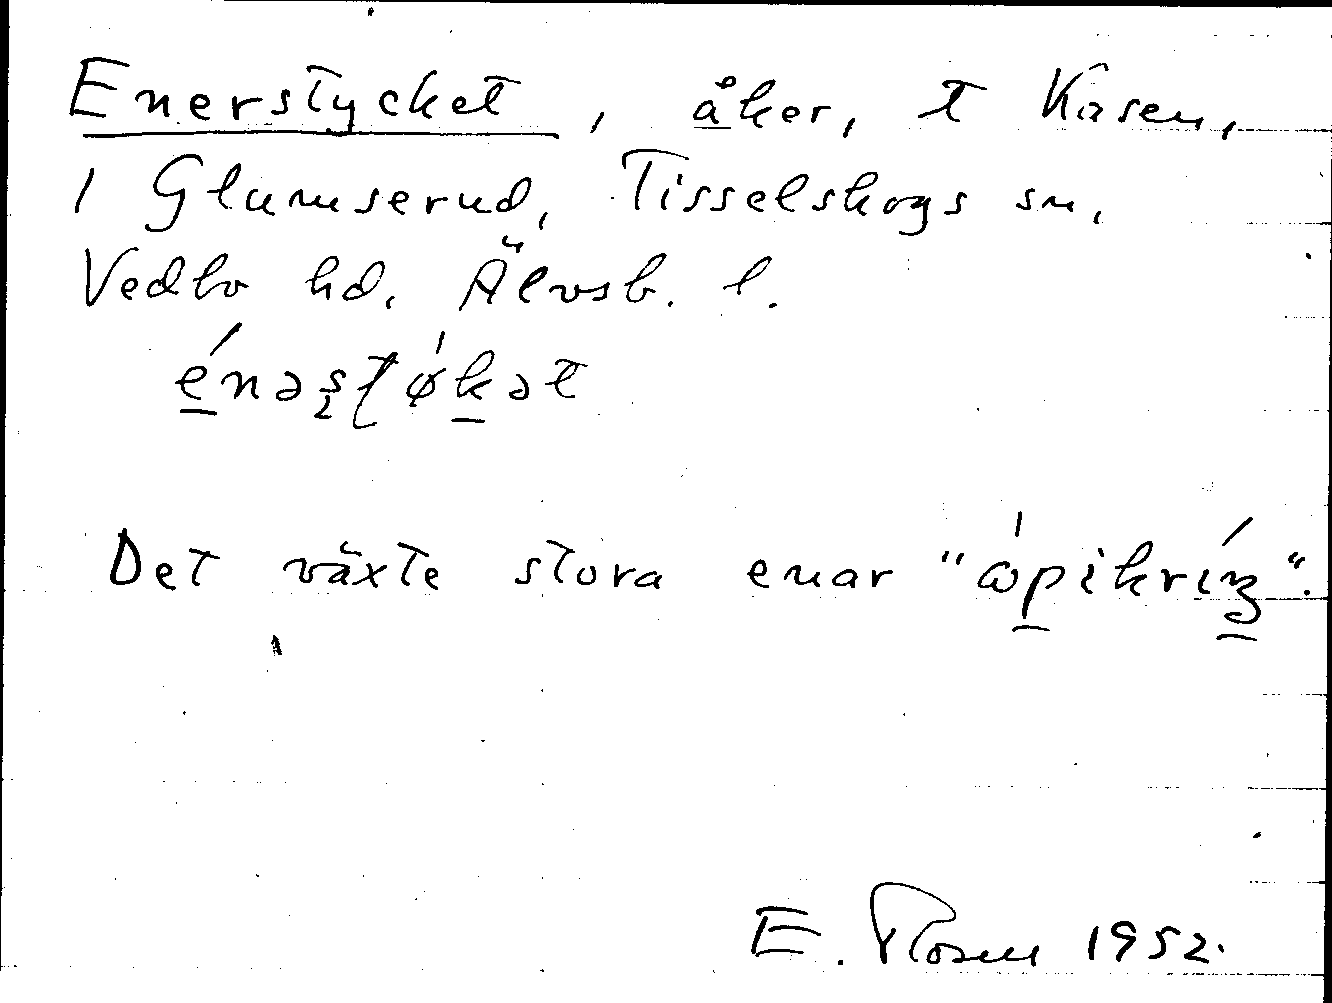 Enerstycket, åker, t Kåsen,
1 Glumserud, Tisselskogs sn,
Vedbo hd, Älvsb. l.
énəsʈǿkət
Det växte stora enar "ápikríŋ".
E. Rosen 1952.